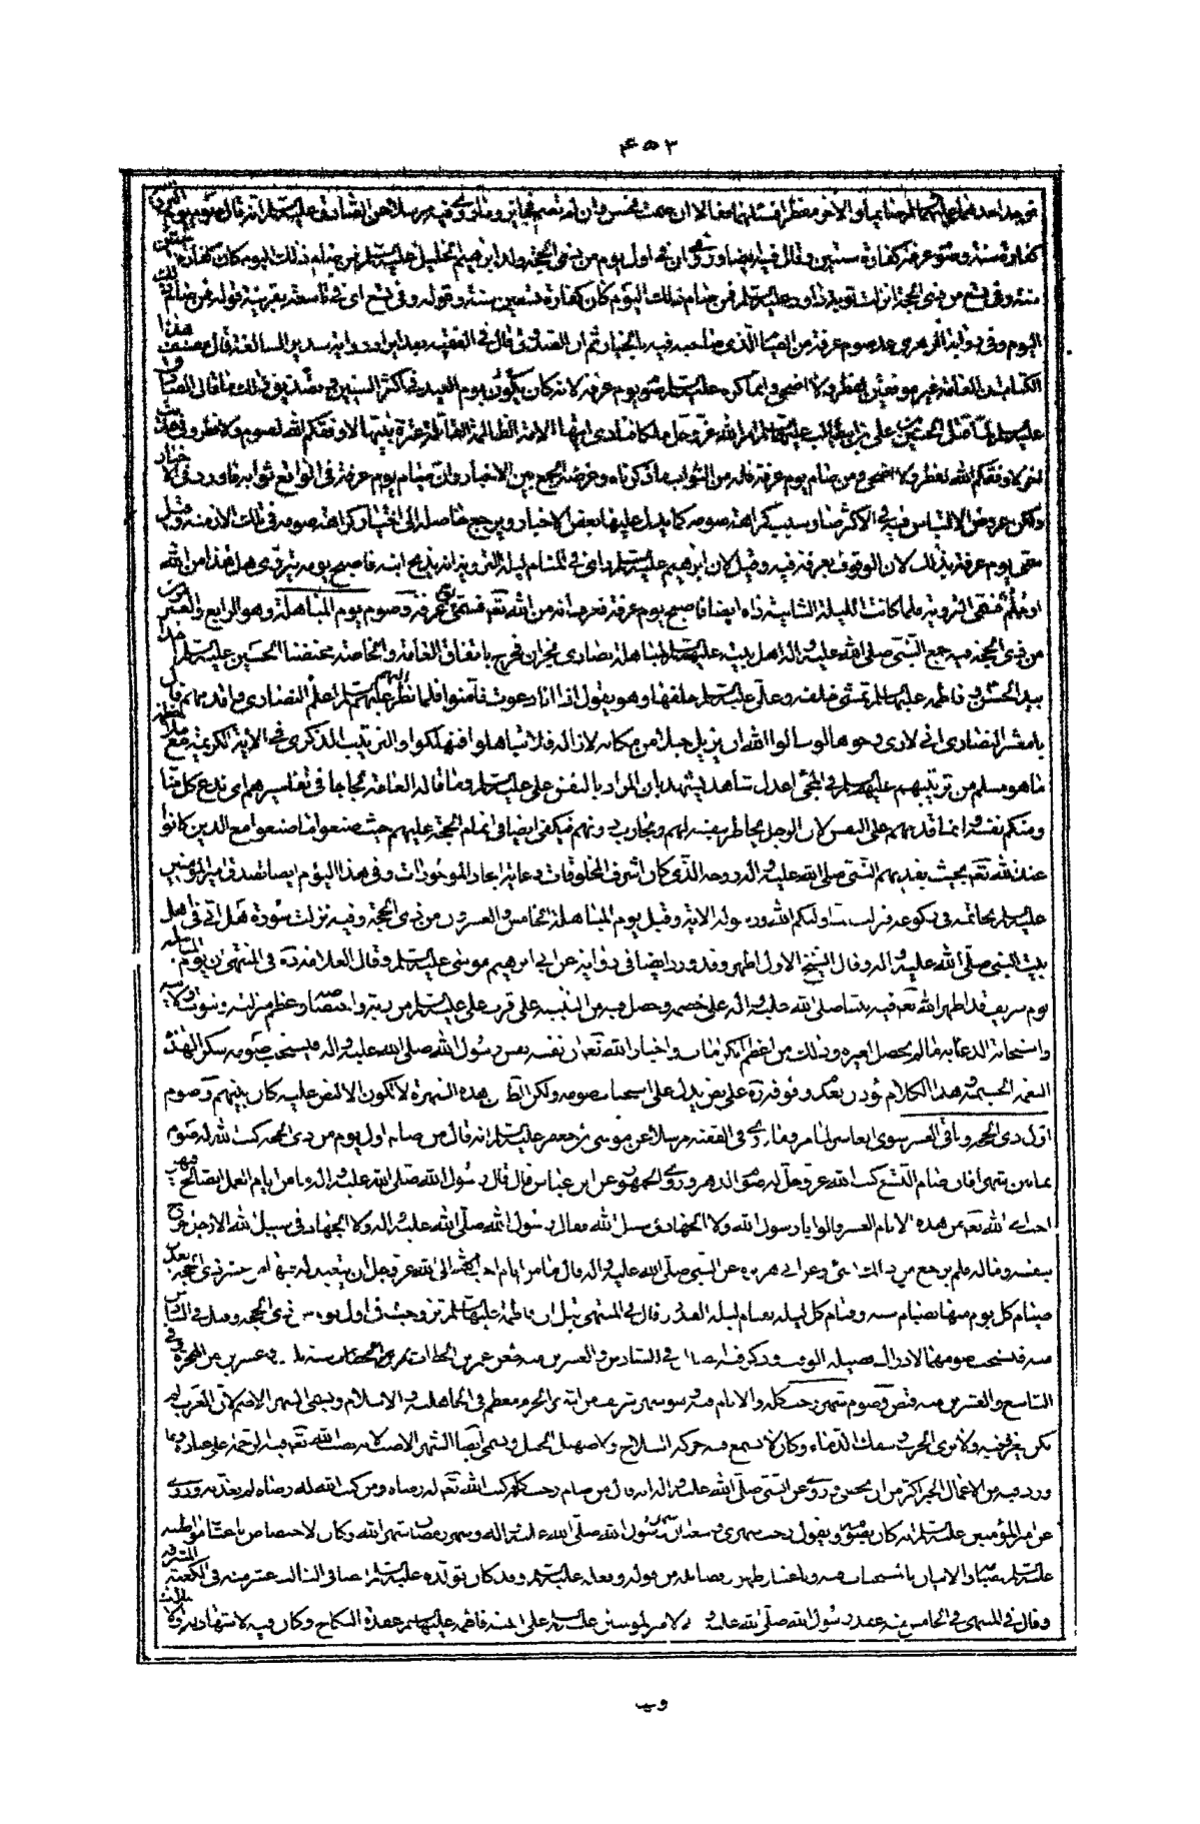 ٤٥٣
فوجد احدهما عليهما السلام صائما والآخر مفطرا فسئلهما فقالا ان صمت فحسن وان لم تصم فجائز وما روى فيه مرسلا عن الصادق عليه السلام انه قال صوم يوم التروية
كفارة سنة وصوم عرفة كفارة سنتين وقال فيه ايضا وروى ان في اول يوم من ذي الحجة ولد ابرهيم الخليل عليه السلام فمن صام ذلك اليوم كان كفارة ستين
سنة وفي تسع من ذي الحجة انزلت توبة داود عليه السلام فمن صام ذلك اليوم كان كفارة تسعين سنة وقوله وفي تسع اي في تاسعه بقرينة قوله فمن صام ذلك
اليوم وفي رواية الزهري عد صوم عرفة من الصيام الذي صاحبه فيه بالخيار ثم ان الصدوق قال في الفقيه بعد ايراد رواية سدير السالفة قال مصنف هذا
الكتاب ان العامة غير موفقين لفطر ولا اضحى وانما كره عليه السلام صوم يوم عرفة لانه كان يكون يوم العيد في اكثر السنين وتصديق ذلك ما قال الصادق
عليه السلام لما قتل الحسين بن علي بن ابي طالب عليهما السلام امر الله عز وجل ملكا فنادى ايتها الامة الظالمة القاتلة عترة نبيها لا وفقكم الله لصوم ولا فطر وفي حديث
آخر لا وفقكم الله لفطر ولا اضحى ومن صام يوم عرفة فله من الثواب ما ذكرناه وغرضه الجمع بين الاخبار وان صيام يوم عرفة في الواقع ثوابه ما ورد في الاخبار
ولكن عروض الالتباس فيه في الاكثر صار سبب كراهة صومه كما يدل عليها بعض الاخبار ويرجع حاصله الى اختيار كراهة صومه في تلك الازمنة وقيل
سمى يوم عرفة بذلك لان الوقوف بعرفة فيه وقيل لان ابرهيم عليه السلام راى في المنام ليلة التروية انه يذبح ابنه فاصبح يومه يتروى هل هذا من الله
او حلم فسمى التروية فلما كانت الليلة الثانية رآه ايضا فاصبح يوم عرفة فعرف انه من الله تعالى فسمى يوم عرفة وصوم يوم المباهلة وهو الرابع والعشرون
من ذي الحجة فيه جمع النبي صلى الله عليه وآله اهل بيته عليهم السلام لمباهلة نصارى نجران فخرج باتفاق العامة والخاصة محتضنا الحسين عليه السلام آخذا
بيد الحسن وفاطمة عليها السلام تمشي خلفه وعلي عليه السلام خلفها وهو يقول اذا انا دعوت فآمنوا فلما نظر اليهم اعلم النصارى واقدمهم قال
يا معشر النصارى اني لارى وجوها لو سالوا الله ان يزيل جبلا من مكانه لازاله فلا تباهلوا فتهلكوا والترتيب الذكرى في الآية الكريمة مع ملاحظة
ما هو مسلم من ترتيبهم عليهم السلام في المجئ اعدل شاهد يشهد بان المراد بالنفس علي عليه السلام وما قاله العامة في تفاسيرهم اي ندع كل منا
ومنكم نفسه وانما قدمهم على النفس لان الرجل يخاطر بنفسه لهم ويحارب دونهم فيكفى ايضا في اتمام الحجة عليهم حيث صنعوا ما صنعوا مع الذين كانوا
عند الله تعالى بحيث يفديهم النبي صلى الله عليه وآله روحه الذي كان اشرف المخلوقات وغاية ايجاد الموجودات وفي هذا اليوم ايضا تصدق امير المؤمنين
عليه السلام بخاتمه في ركوعه فنزلت انما وليكم الله ورسوله الآية وقيل يوم المباهلة الخامس والعشرون من ذي الحجة وفيه نزلت سورة هل اتى في اهل
بيت النبي صلى الله عليه وآله وقال الشيخ الاول اظهر وقد ورد ايضا في رواية عن ابي ابرهيم موسى عليه السلام وقال العلامة في المنتهى ان يوم المباهلة
يوم شريف قد اظهر الله تعالى فيه نبينا صلى الله عليه وآله على خصمه وحصل فيه من التنبيه على قرب علي عليه السلام من ربه واختصاصه وعظم منزلته وثبوت ولايته
واستجابة الدعاء به ما لم يحصل لغيره وذلك من اعظم الكرامات واخبار الله تعالى ان نفسه نفس رسول الله صلى الله عليه وآله فيستحب صومه شكرا لهذه
النعمة الجسيمة هذا الكلام يؤذن بعدم وقوفه على نص يدل على استحباب صومه ولكن هذه الشهرة لا تكون الا لنص عليه كان بينهم وصوم
اول ذي الحجة وباقي العشر سوى العاشر لما مر وما روى في الفقيه مرسلا عن موسى بن جعفر عليه السلام انه قال من صام اول يوم من ذي الحجة كتب الله له صوم
ثمانين شهرا فان صام التسع كتب الله عز وجل له صوم الدهر وروى الجمهور عن ابن عباس قال قال رسول الله صلى الله عليه وآله ما من ايام العمل الصالح فيهن
احب الى الله تعالى من هذه الايام العشر قالوا يا رسول الله ولا الجهاد في سبيل الله فقال رسول الله صلى الله عليه وآله ولا الجهاد في سبيل الله الا رجل خرج
بنفسه وماله فلم يرجع من ذلك بشئ وعن ابي هريرة عن النبي صلى الله عليه وآله قال ما من ايام احب الى الله عز وجل ان يتعبد له فيها من عشر ذي الحجة يعدل
صيام كل يوم منها بصيام سنة وقيام كل ليلة بقيام ليلة القدر قال في المنتهى قيل ان فاطمة عليها السلام تزوجت في اول يوم من ذي الحجة وقيل في السادس
منه فيستحب صومهما في السادس والعشرين منه طعن عمر بن الخطاب سنة ثلاث وعشرين من الهجرة وفي
التاسع والعشرين منه قبض وصوم شهر رجب كله والايام منه وهو شهر شريف من اشهر الحرم معظم في الجاهلية والاسلام ويسمى الشهر الاصم لان العرب لم
تكن يغير فيه ولا ترى الحرب وسفك الدماء وكان لا يسمع فيه حركة السلاح ولا صهيل الخيل ويسمى ايضا الشهر الاصب لانه يصب الله تعالى فيه الرحمة على عباده وما
ورد فيه من الاعمال الخير اكثر من ان يحصى وروى عن النبي صلى الله عليه وآله انه قال من صام رجب كله كتب الله تعالى له رضاه ومن كتب الله له رضاه لم يعذبه وروى
عن امير المؤمنين عليه السلام انه كان يصومه ويقول رجب شهري وشعبان شهر رسول الله صلى الله عليه وآله وشهر رمضان شهر الله وكان الاختصاص باعتبار مواظبته
عليه السلام وباعتبار ظهور فضائله من مولده عليه السلام وقد كان تولده عليه السلام ايضا في الثالث عشر منه في الكعبة المشرفة
وقال في المنتهى في الخامس عشر منه عقد رسول الله صلى الله عليه وآله لامير المؤمنين عليه السلام على ابنته فاطمة عليها السلام عقدة النكاح وكان فيه الاشهاد
وفيه